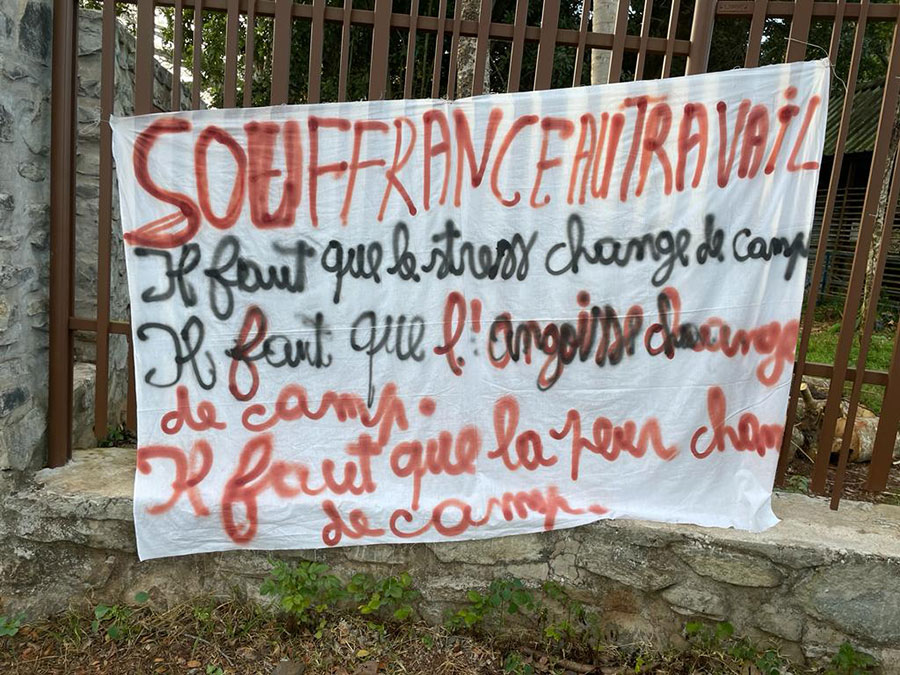 SOUFFRANCE AU TRAVAIL
Il faut que le stress change de camp
Il faut que l'angoisse change
de camp.
Il faut que la peur chan
de camp.